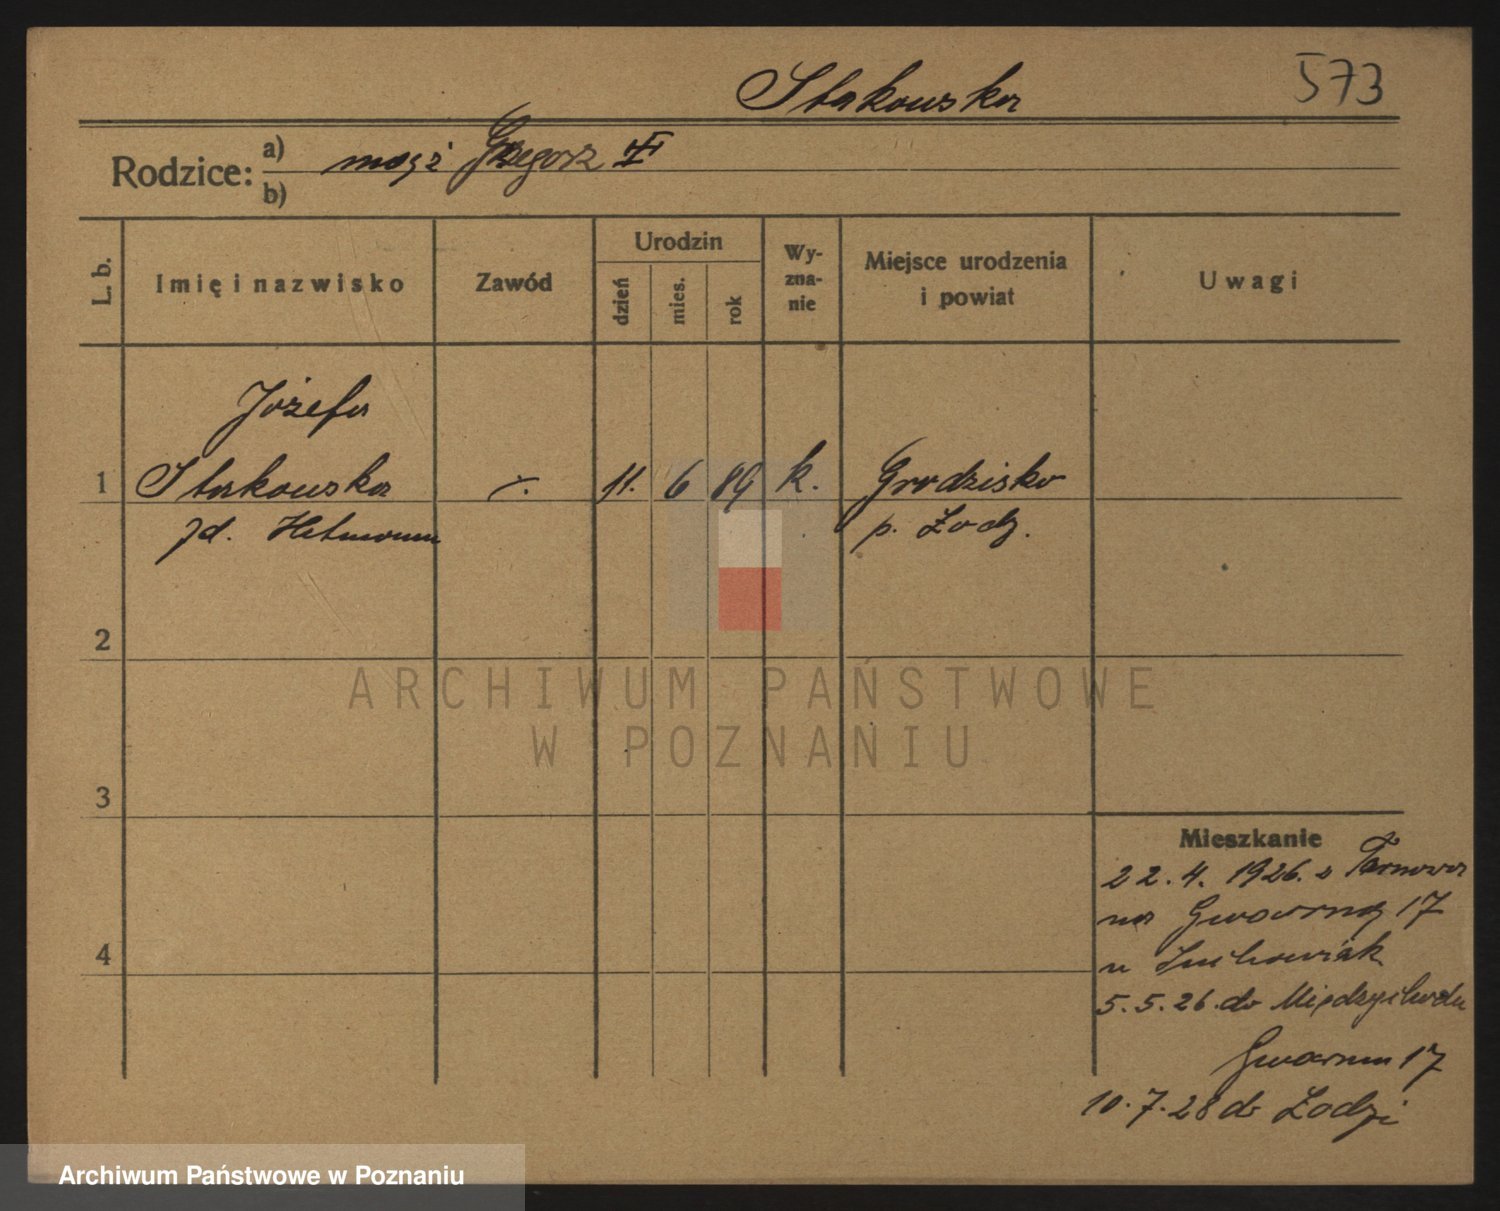 Stakowska
573
Rodzice: a) mąż Grzegorz
b)
L. b.
Imię i nazwisko
Zawód
Urodzin
dzień
mies.
rok
Wy-
zna-
nie
Miejsce urodzenia
i powiat
Uwagi
Józefa
1 Stakowska ·/. 11. 6 89 k. Grodzisko
p. Łodz.
2
3
4
Mieszkanie
22.4. 1926. z Tarnowa
na Gwarną 17
u
5.5.26. do Międzychodu
Gwarna 17
10.7.28 do Łodzi
ARCHIWUM PAŃSTWOWE
W POZNANIU
Archiwum Państwowe w Poznaniu